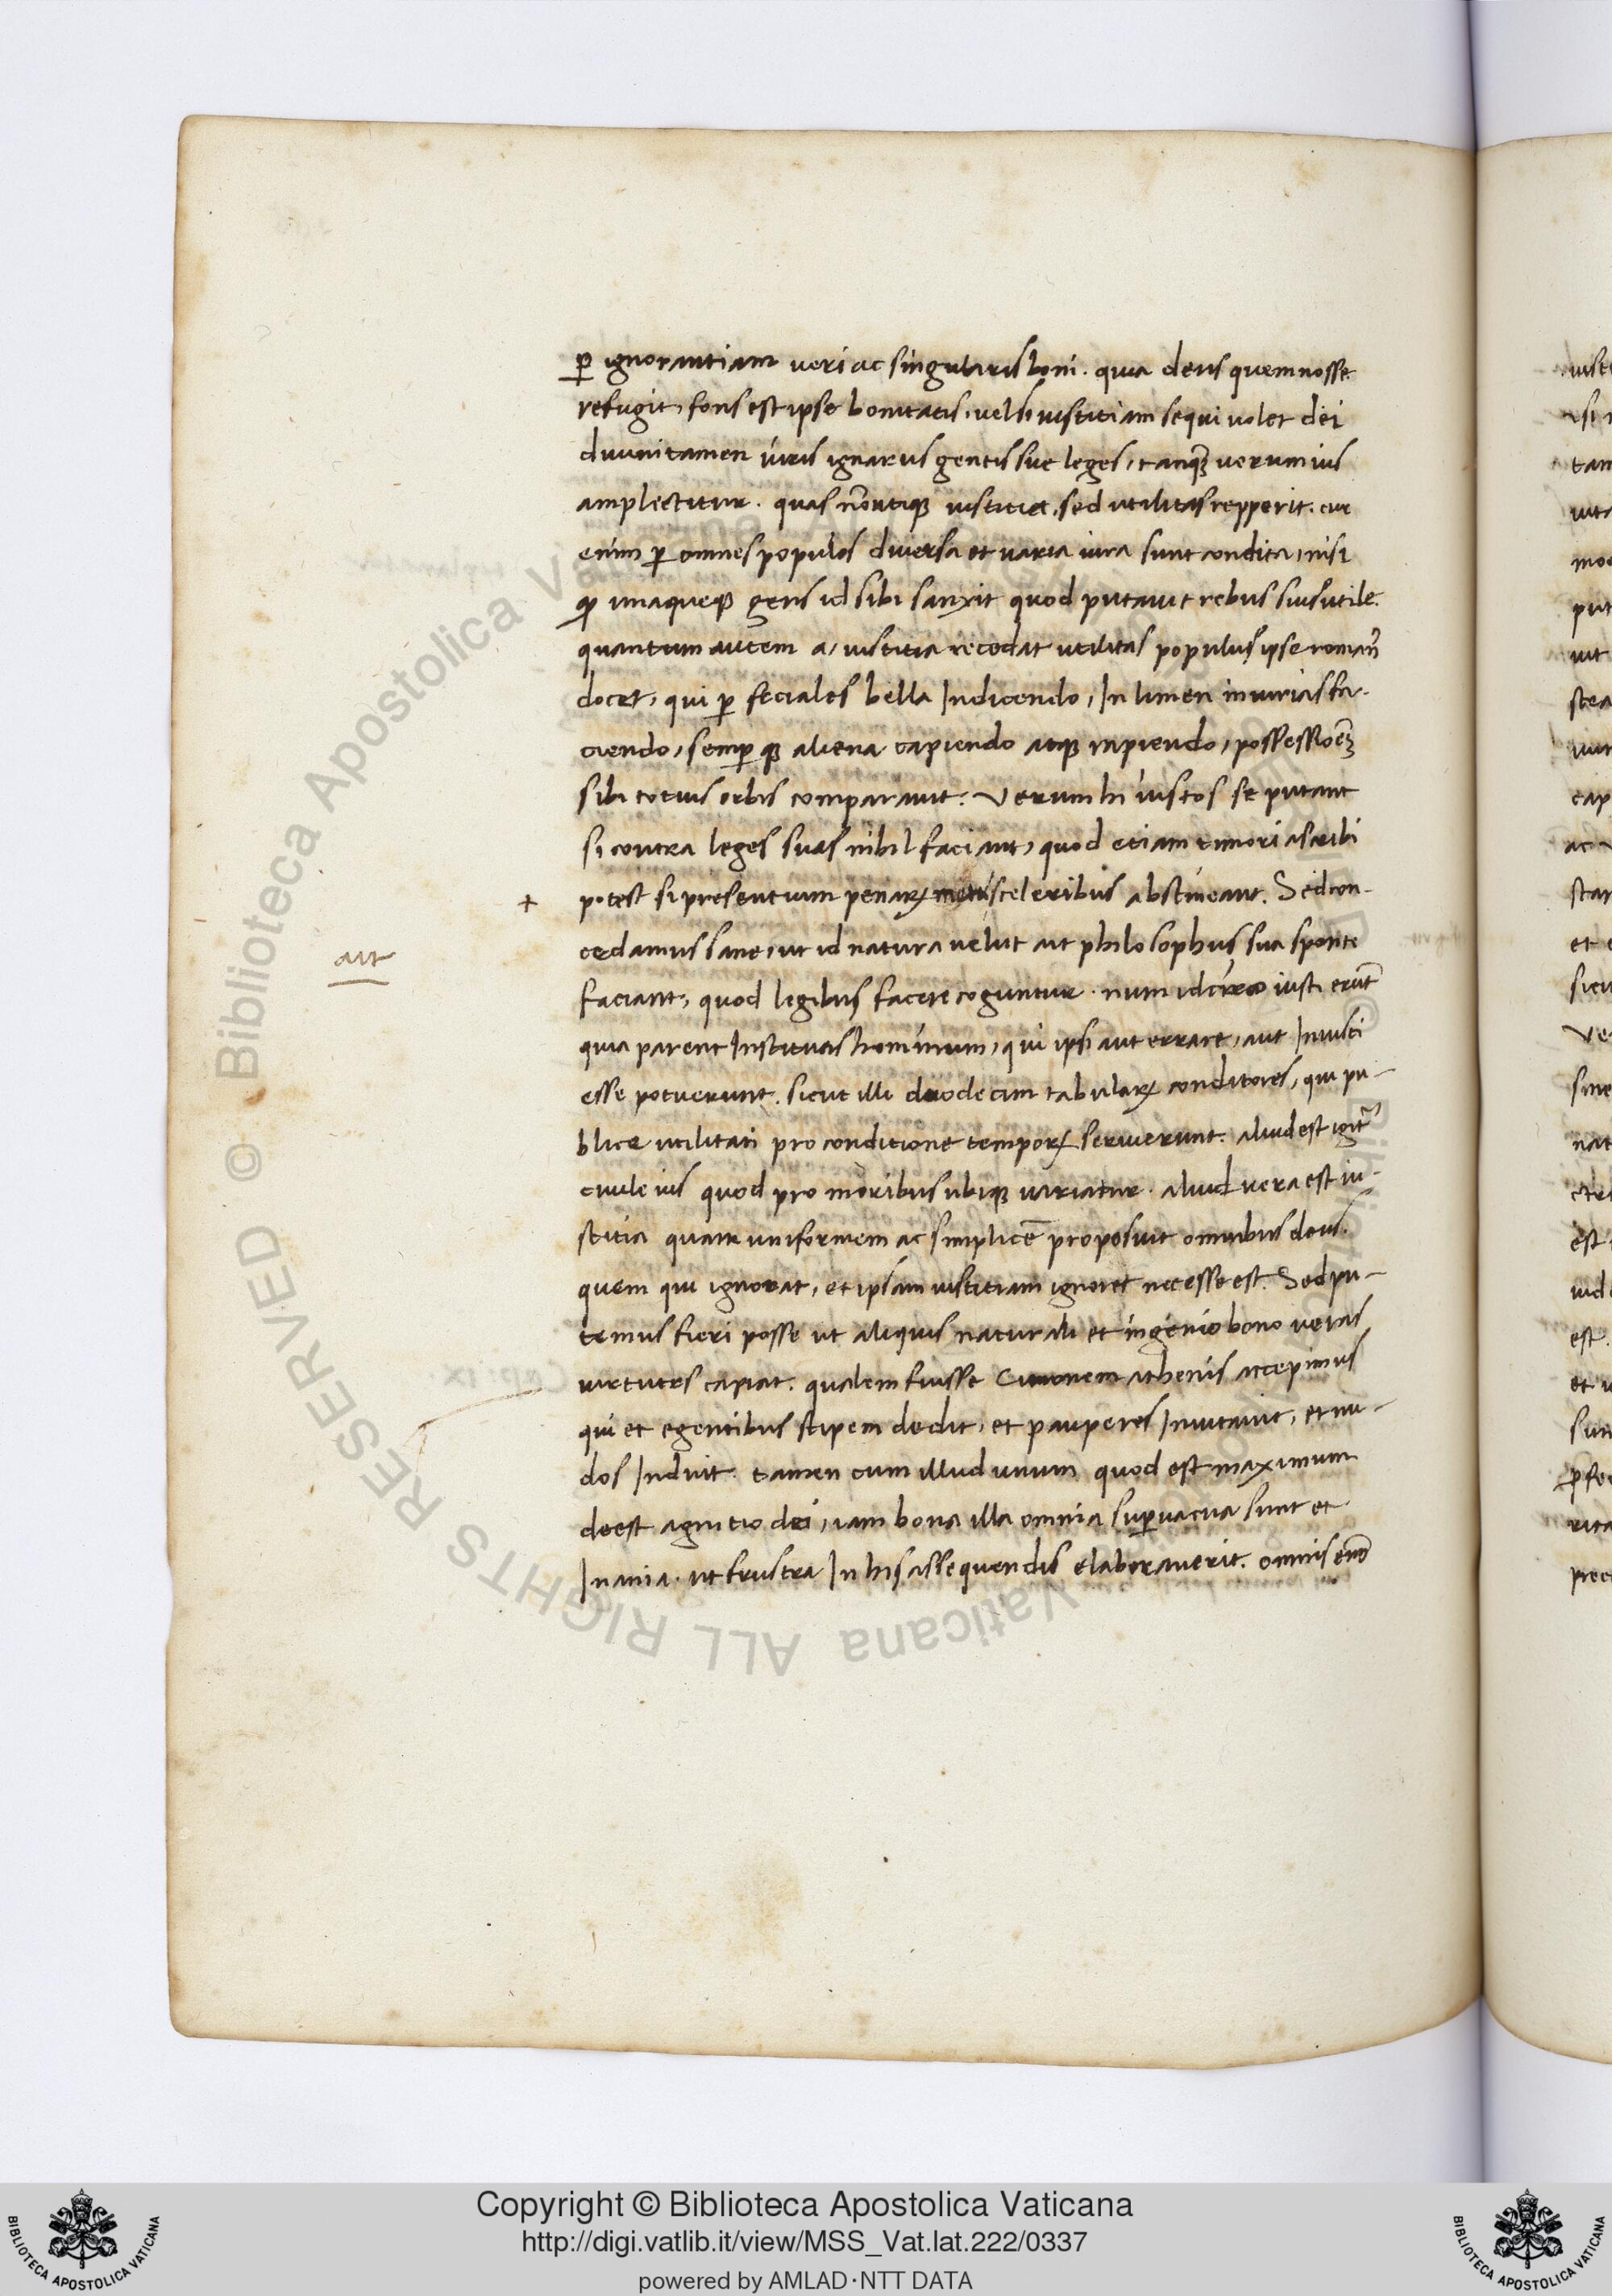 ꝑ ignorantiam veri ac singularis boni. quia deus quem nosse
refugit, fons est ipse bonitatis, vel si iustitiam sequi volet dei
diuini tamen iuris ignarus gentis sue leges, tanqꝫ verum ius
amplectitur. quas nō utiqꝫ iustitia, sed utilitas repperit. cur
enim ꝑ omnes populos diversa et varia iura sunt condita, nisi
ꝙ unaqueqꝫ gens id sibi sanxit quod putavit rebus suis utile.
quantum autem a, iustitia recedat utilitas populus ipse romanꝰ
docet, qui ꝑ feciales bella Indicendo, In limen iniurias fa-
ciendo, semꝑ qꝫ aliena capiendo atqꝫ rapiendo, possessioēꝫ
sibi totius orbis comparavit. Verum hi iustos se putant
si contra leges suas nihil faciant, quod etiam timori ascribi
+ potest si presentium penaꝝ metu sceleribus abstineant. Sed con-
cedamus sane, ut id natura velut ait philosophus sua sponte
ait
faciant, quod legibus facere coguntur. num idcirco iusti erūt
quia parent Institutis hominum, qui ipsi aut errare, aut Iniusti
esse potuerunt. sicut illi duodecim tabulaꝝ conditores, qui pu-
blice utilitati pro conditione tempoꝝ servierunt. aliud est igit̄
civile ius quod pro moribus ubiqꝫ variatur. aliud vera est iu-
stitia quam uniformem ac simplicē proposuit omnibus deus.
quem qui ignorat, et ipsam iustitiam ignoret necesse est. Sed pu-
temus fieri posse ut aliquis naturali et ingenio bono veras
virtutes capiat. qualem fuisse Cimonem athenis accepimus
qui et egentibus stipem dedit, et pauperes Invitavit, et nu-
dos Induit. tamen cum illud unum quod est maximum
deest agnitio dei, iam bona illa omnia suꝑvacua sunt et
Inania. ut frustra In his assequendis elaboraverit. omnis enī
Copyright © Biblioteca Apostolica Vaticana
http://digi.vatlib.it/view/MSS_Vat.lat.222/0337
powered by AMLAD·NTT DATA
BIBLIOTECA APOSTOLICA VATICANA
BIBLIOTECA APOSTOLICA VATICANA